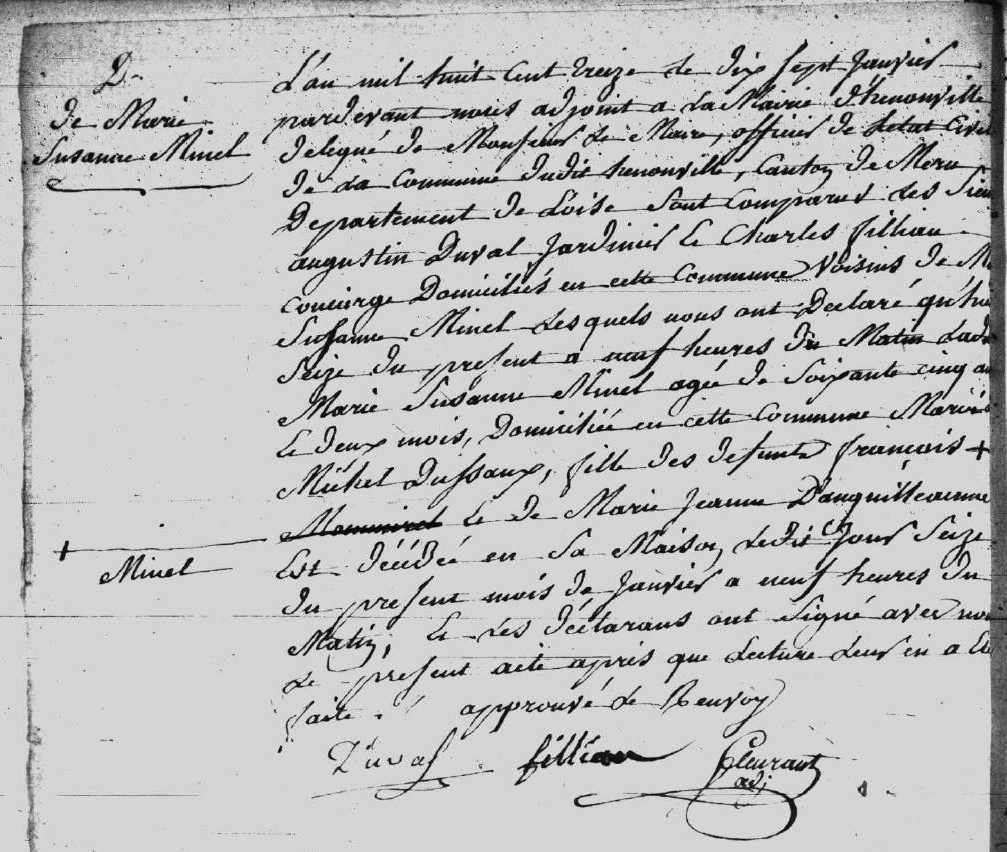 D.
de Marie
Susanne Minel
L'an mil huit cent treize le dix sept Janvier
pardevant nous adjoint a La Mairie d'henonville
delegué de Monsieur Le Maire, officier de Letat Civil
de La Commune dudit henonville, Canton de Meru
Departement de Loise sont Comparus Les Sieurs
augustin Duval Jardinier & Charles fillian
concierge Domiciliés en cette Commune Voisins de M
Susanne Minel Lesquels nous ont Declaré qu'hie
Seize du present a neuf heures du Matin Ladi
Marie Susanne Minel agée de Soixante cinq an
& deux mois, Domiciliée en cette Commune Mariée
Michel Dussaux, fille des defunts françois +
& de Marie Jeanne Danquilleaume
Est décédée en Sa Maison, Ledit Jour Seize
du present mois de Janvier a neuf heures du
Matin, & Les déclarans ont Signé avec nou
Le present acte après que Lecture Leur en a Et
faite. approuvé Le Renvoy
+
Minel
Duval fillian Fleurant
adj